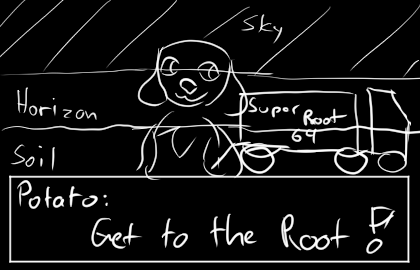 Sky
Horizon
Super Root
64
Soil
Potato:
Get to the Root!